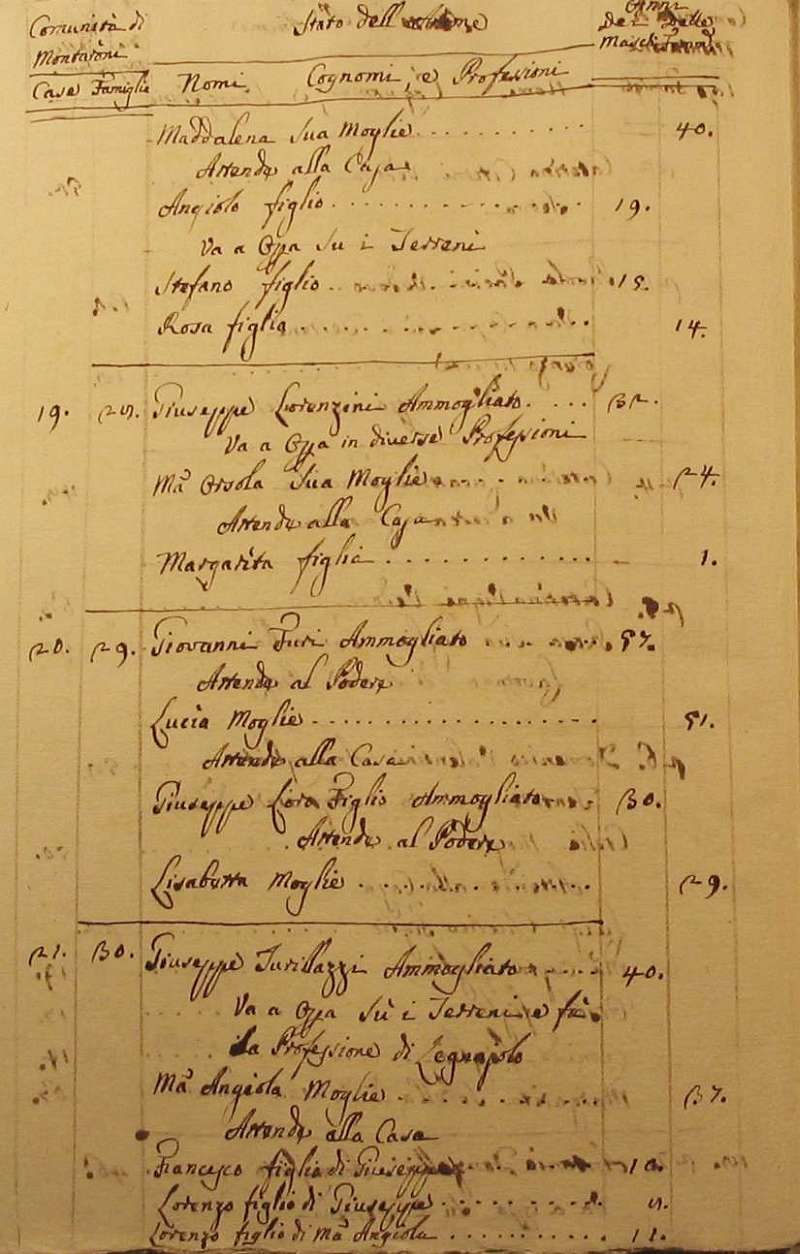 Comunità di
Montaroni
Stato dell' Anime
Anni
Dei Delle
Maschi Femmi
Case Famiglie Nomi, Cognomi, e Professioni
Maddalena Sua Moglie 40.
Attende alla Casa
Angiolo figlio 19.
Va a Opa Su i Terreni
Stefano figlio 15.
Rosa figlia 14.
19. Giuseppe Lorenzini Ammogliato 32.
Va a Opa in diverse Professioni
Mª Orsola Sua Moglie 24.
Attende alla Casa
Margarita figlia 1.
20. 29. Giovanni Turi Ammogliato 57.
Attende al Podere
Lucia Moglie 51.
Attende alla Casa
Giuseppe Loro Figlio Ammogliato 30.
Attende al Podere
Lisabetta Moglie 29.
21. 30. Giuseppe Turillazzi Ammogliato 40.
Va a Opa Sù i Terreni e fà
la Professione di Legnajolo
Mª Angiola Moglie 37.
Attende alla Casa
Francesco figlio di Giuseppe 10.
Lorenzo figlio di Giuseppe
Lorenzo figlio di Mª Angiola 11.